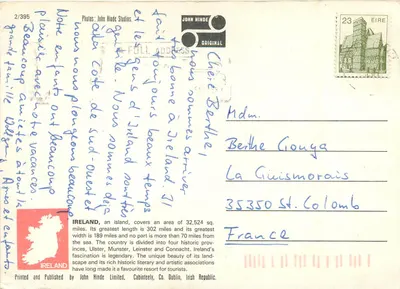 2/395
Photos: John Hinde Studios
JOHN HINDE
ORIGINAL
23 EIRE
Chère Berthe!
nous sommes arrivés
très bonne à Ireland. Il
fait toujours beau temps
et les gens d'Ireland sont très
gentile. Nous sommes déjà
côte de sud-ouest et
nous nous plongeons beaucoup
Notre enfants ont beaucoup
plaisir avec notre vacances.
Beaucoup amitiés à tout la
grande famille
Mdm.
Berthe
La Guismorais
35350 St. Colomb
France
IRELAND, an island, covers an area of 32,524 sq.
miles. Its greatest length is 302 miles and its greatest
width is 189 miles and no part is more than 70 miles from
the sea. The country is divided into four historic prov-
inces, Ulster, Munster, Leinster and Connacht. Ireland's
fascination is legendary. The unique beauty of its land-
scape and its rich historic literary and artistic associations
have long made it a favourite resort for tourists.
IRELAND
Printed and Published by John Hinde Limited, Cabinteely, Co. Dublin, Irish Republic.